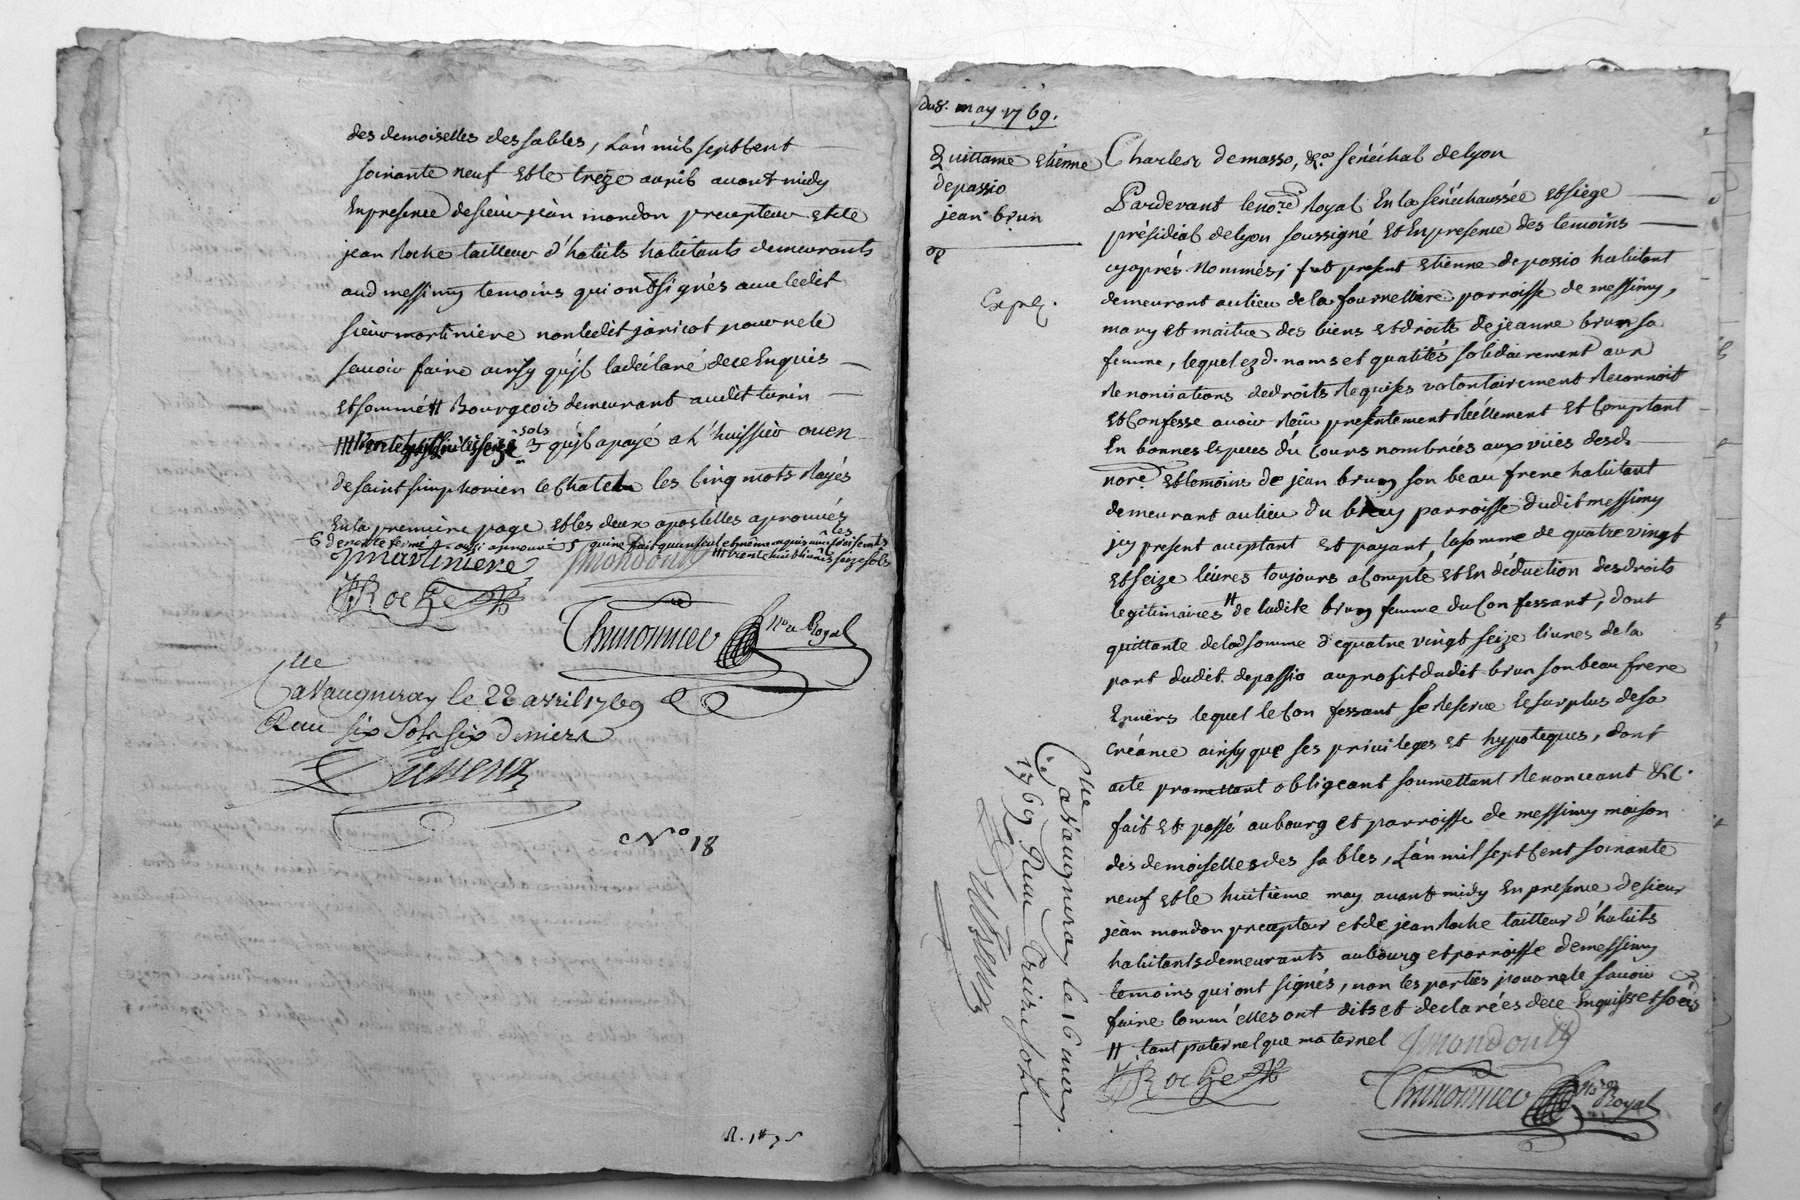 des demoiselles des sables, L'an mil sept cent
soixante neuf et le treize avril avant midy
En presence de sieur jean mondon precepteur et de
jean Roche tailleur d'habits habitants demeurants
aud messimy temoins qui ont signés avec ledit
sieur martiniere non ledit jaricot pour ne le
savoir faire ainsy qu'jl la déclaré de ce Enquis
et sommé # Bourgeois demeurant audit turin
sols qu'jl a payé a L'huissier
de saint simphorien le Chatel les Cinq mots Rayés
En la premiere page et les deux apostilles aprouvés
martiniere jmondon
JRoche
Thimonnier No.re Royal
Clle
a Vaugneray le 22 avril 1769
Reçu six Sols six Deniers
No 18
du 8. may 1769.
Quittance Etienne
depassio
jean brun
Exp.
Charles demasso, &.a senéchal de lyon
Pardevant le no.re Royal En la senéchaussée et siege
présidial de lyon soussigné et En presence des temoins
cyaprés Nommés; fut present Etienne depassio habitant
demeurant au lieu de la fournettiere parroisse de messimy,
mary et maitre des biens et droits de jeanne brun sa
femme, lequel ezd. noms et qualités solidairement aux
Renonciations de droits Requises volontairement Reconnoit
et Confesse avoir Reçu presentement Réellement et Comptant
En bonnes Especes du Cours nombrées aux vües desd.
no.re et temoins de jean brun son beau frere habitant
demeurant au lieu du parroisse dudit messimy
jcy present acceptant et payant, la somme de quatre vingt
et seize livres toujours a Compte et En déduction des droits
legitimaires # de ladite brun femme du Confessant, dont
quittance de lad somme de quatre vingt seize livres de la
part dudit depassio au profit dudit brun son beau frere
Envers lequel le Confessant se Reserve le surplus de sa
Créance ainsy que ses privileges et hypoteques, dont
acte promettant obligeant soumettant Renonceant &c.
fait et passé au bourg et parroisse de messimy maison
des demoiselles des sables, L'an mil sept Cent soixante
neuf et le huitieme may avant midy En presence de sieur
jean mondon precepteur et de jean Roche tailleur d'habits
habitants demeurants au bourg et parroisse de messimy
temoins qui ont signés, non les parties pour ne le savoir
faire Comm'elles ont dits et declarées de ce Enquises et
# tant paternel que maternel jmondon
JRoche
Thimonnier No.re Royal
Clle
a Vaugneray le 16 may
1769 Reçu Treize Sols